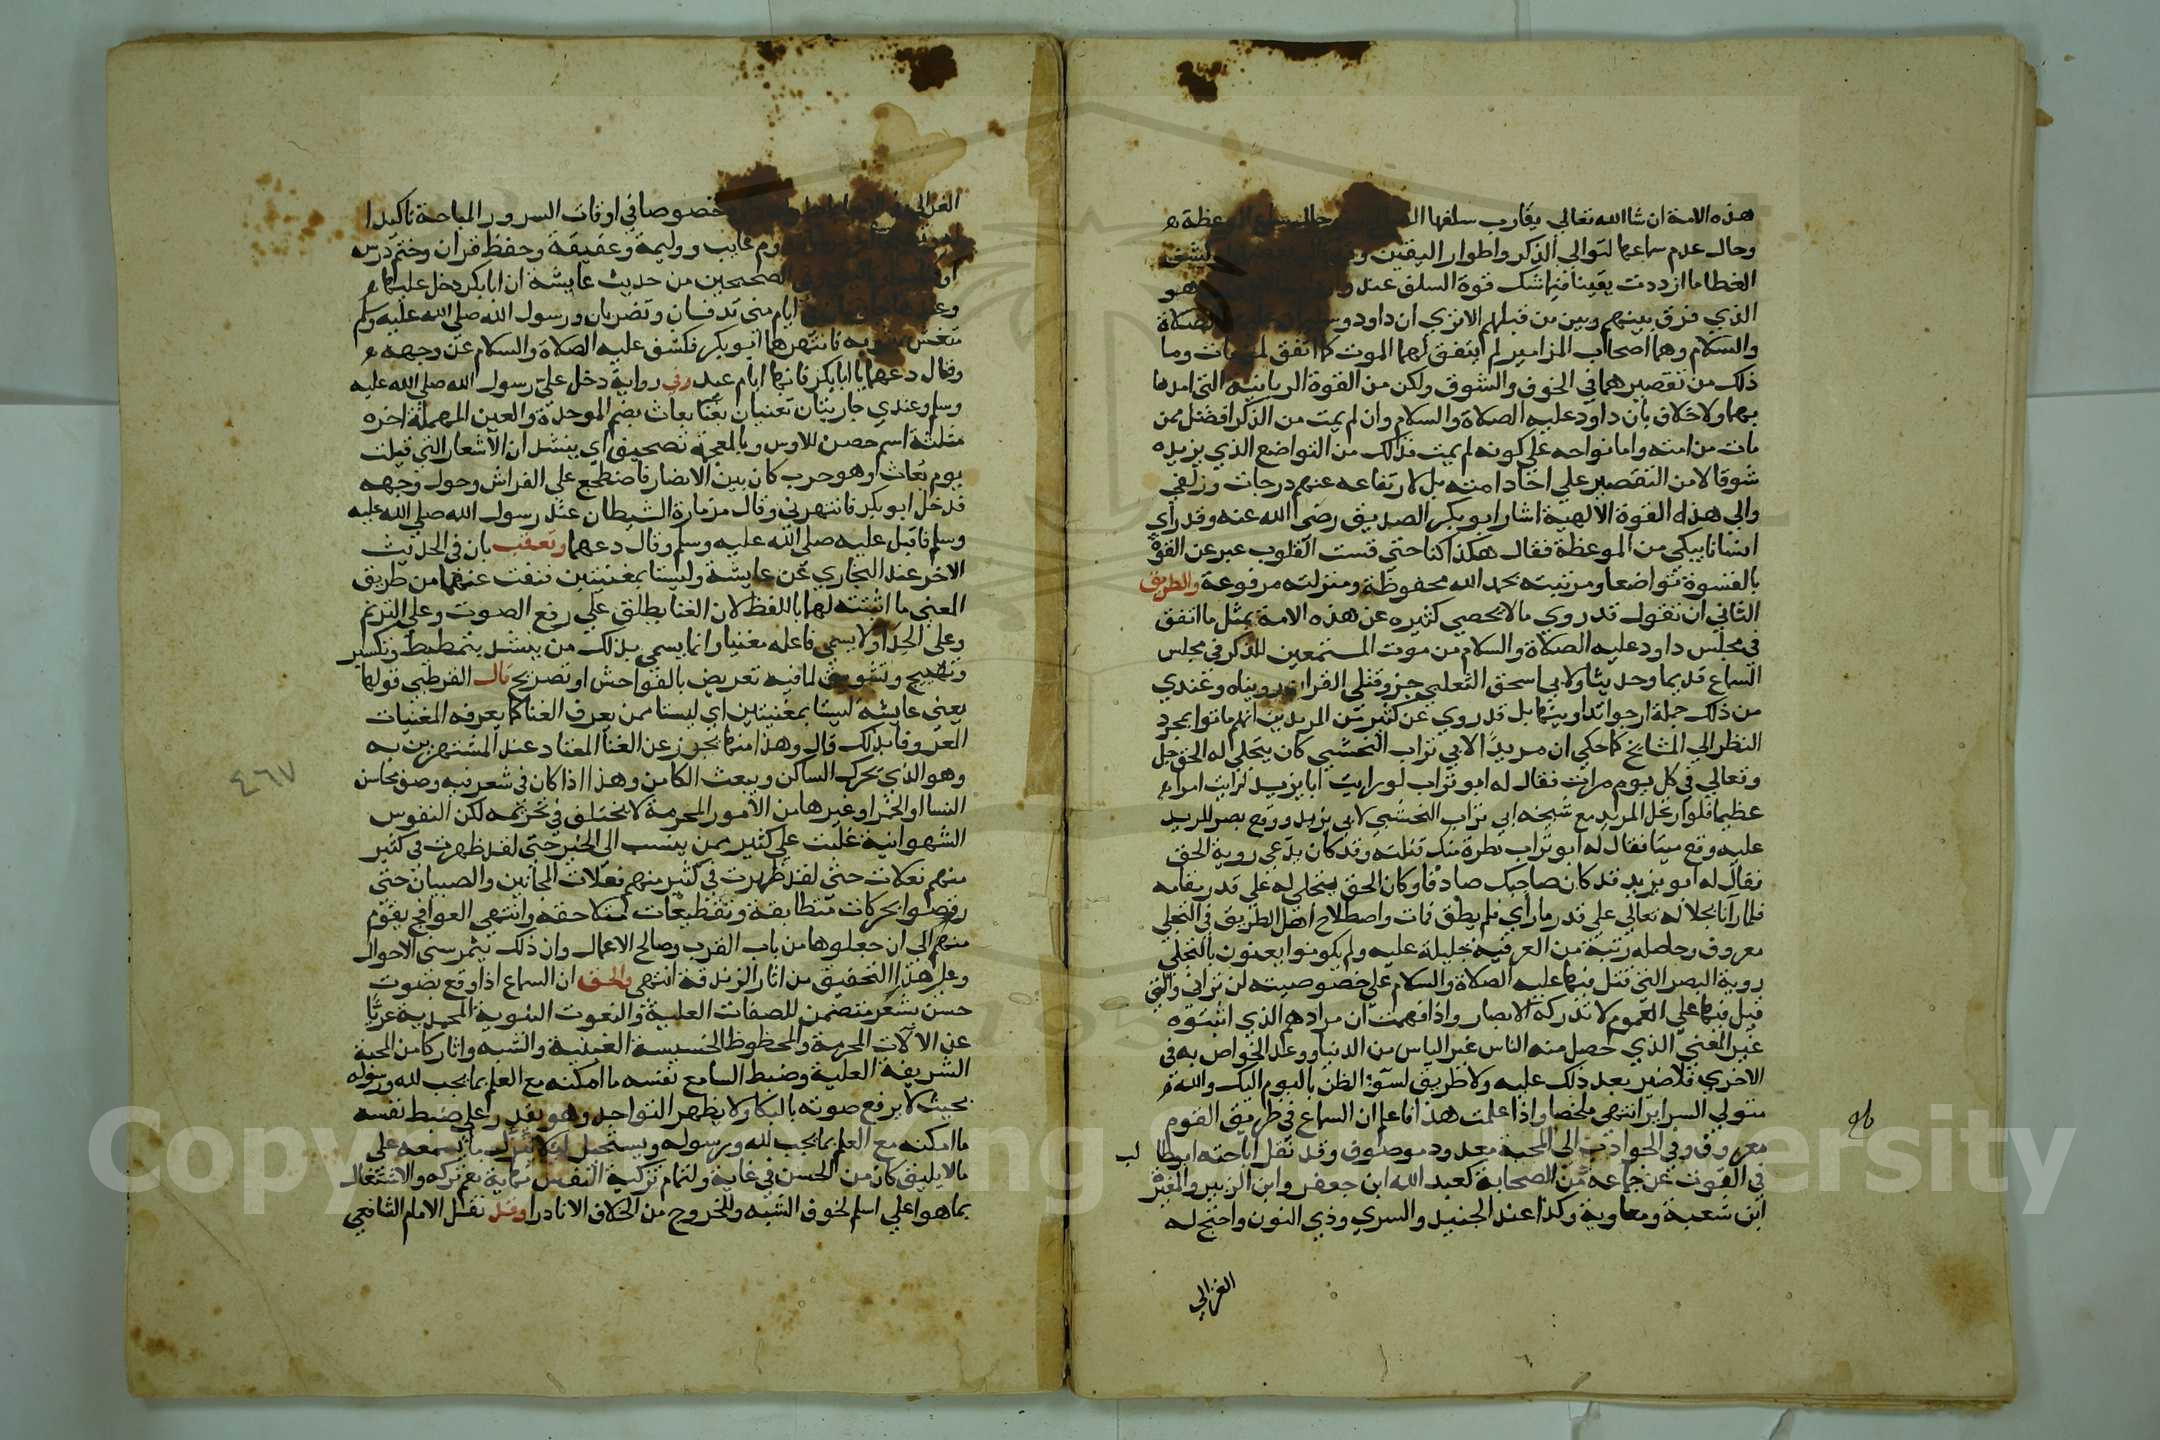 هذه الامة ان شا الله تعالي يقارب سلفها وحال عظة
وحال عدم سماعها لتوالي الذكر واطوار اليقين كشف
الغطا ما ازددت يقينا قوة السلف عند هو
الذي فرق بينهم وبين من قبلهم الا تري ان داود الصلاة
والسلام وهما اصحاب المزامير لم يتفق لهما الموت كما اتفق لمن مات وما
ذلك من تقصيرهما في الخوف والشوق ولكن من القوة الربانية التي امدها
بهما ولا خلاف بان داود عليه الصلاة والسلام وان لم يمت من الذكر افضل ممن
مات من امته واما نواحه علي كونه لم يمت فذلك من التواضع الذي يزيده
شوقا لا من التقصير علي احاد امته بل لارتفاعه عنهم درجات وزلفي
والي هذه القوة الالهية اشار ابو بكر الصديق رضي الله عنه وقد راي
انسانا يبكي من الموعظة فقال هكذا كنا حتي قست القلوب عبر عن القوة
بالقسوة تواضعا ومرتبته بحمد الله محفوظة ومنزلته مرفوعة والطريق
الثاني ان نقول قد روي ما لا يحصي كثيره عن هذه الامة بمثل ما اتفق
في مجلس داود عليه الصلاة والسلام من موت المستمعين للذكر في مجلس
السماع قديما وحديثا ولابي اسحق الثعلبي جز في قتلي القران رويناه وعندي
من ذلك جملة ارجوا تدوينها بل قد روي عن كثير من المريدين انهم ماتوا بمجرد
النظر الي المشايخ كما حكي ان مريدا لابي تراب النخشبي كان يتجلي له الحق جل
وتعالي في كل يوم مرات فقال له ابو تراب لو رايت ابا يزيد لرايت امرا
عظيما فلما ارتحل المريد مع شيخه ابي تراب النخشبي لابي يزيد ووقع بصر المريد
عليه وقع ميتا فقال له ابو تراب نظرة منك قتلته وقد كان يدعي روية الحق
فقال له ابو يزيد قد كان صاحبك صادقا وكان الحق يتجلي له علي قدر مقامه
فلما رانا تجلا له تعالي علي قدر ما راي فلم يطق فمات واصطلاح اهل الطريق في التجلي
معروف وحاصله رتبة من العرفية جليلة عليه ولم يكونوا يعنون بالتجلي
روية البصر التي قيل فيها عليه الصلاة والسلام علي خصوصيته لن تراني والتي
قيل فيها علي العموم لا تدركه الابصار واذا فهمت ان مرادهم الذي اثبتوه
غير المعني الذي حصل منه الناس غير الياس من الدنيا ووعد الخواص به في
الاخري فلا ضير بعد ذلك عليه ولا طريق لسوء الظن بالقوم اليك والله
متولي السراير انتهي ملخصا واذا علمت هذا فاعلم ان السماع في طريق القوم
معروف وفي الجواذب الي المحبة معدود موصوف وقد نقل اباحته ابو طالب
في القوت عن جماعة من الصحابة كعبد الله ابن جعفر وابن الزبير والمغيرة
ابن شعبة ومعاوية وكذا عند الجنيد والسري وذي النون واحتج له
الغزالي
الغزالي خصوصا في اوقات السرور المباحة تاكيدا
غايب ووليمة وعقيقة وحفظ قران وختم درس
الصحيحين من حديث عايشة ان ابا بكر دخل عليها
ايام مني تدفان وتضربان ورسول الله صلي الله عليه وسلم
متغش بثوبه فانتهرهما ابو بكر فكشف عليه الصلاة والسلام عن وجهه
وقال دعهما يا ابا بكر فانها ايام عيد وفي رواية دخل علي رسول الله صلي الله عليه
وسلم وعندي جاريتان تغنيان بغنا بعاث بضم الموحدة والعين المهملة اخره
مثلثة اسم حصن للاوس وبالمعجمة تصحيف اي ينشدان الاشعار التي قيلت
يوم بعاث وهو حرب كان بين الانصار فاضطجع علي الفراش وحول وجهه
فدخل ابو بكر فانتهرني وقال مزمارة الشيطان عند رسول الله صلي الله عليه
وسلم فاقبل عليه صلي الله عليه وسلم وقال دعهما وتعقب بان في الحديث
الاخر عند البخاري عن عايشة وليستا بمغنيتين فنفت عنهما من طريق
المعني ما اثبته لهما باللفظ لان الغنا يطلق علي رفع الصوت وعلي الترنم
وعلي الحدا ولا يسمي فاعله مغنيا وانما يسمي بذلك من ينشد بتمطيط وتكسير
وتهييج وتشويق لما فيه تعريض بالفواحش او تصريح قال القرطبي قولها
يعني عايشة ليستا بمغنيتين اي ليستا ممن يعرف الغنا كما يعرفه المغنيات
المعروفات بذلك قال وهذا منها تجوز عن الغنا المعتاد عند المشتهرين به
وهو الذي يحرك الساكن ويبعث الكامن وهذا اذا كان في شعر فيه وصف محاسن
النسا او الخمر او غيرها من الامور المحرمة لا يختلف في تحريمه لكن النفوس
الشهوانية غلبت علي كثير ممن ينسب الي الخير حتي لقد ظهرت في كثير
منهم فعلات حتي لقد ظهرت في كثير منهم فعلات المجانين والصبيان حتي
رقصوا بحركات متطابقة وتقطيعات متلاحقة وانتهي التواقح بقوم
منهم الي ان جعلوها من باب القرب وصالح الاعمال وان ذلك يثمر سني الاحوال
وعلي هذا التحقيق من اثار الزندقة انتهي والحق ان السماع اذا وقع بصوت
حسن بشعر متضمن للصفات العلية والنعوت النبوية المحمدية عريا
عن الالات المحرمة والحظوظ الخسيسة الغبنية والشبه واثار كامن المحبة
الشريفة العلية وضبط السامع نفسه ما امكنه مع العلم بما يجب لله ورسوله
بحيث لا يرفع صوته بالبكا ولا يظهر التواجد وهو يقدر علي ضبط نفسه
ما امكنه مع العلم بما يجب لله ورسوله ويستحيل ليلا ينزل ما يسمعه علي
ما لا يليق كان من الحسن في غاية ولتمام تزكية النفس نهاية نعم تركه والاشتغال
بما هو اعلي اسلم لخوف الشبه وللخروج من الخلاف الا نادرا وقد نقل الامام الشافعي
٤٦٧
Copyright © King Saud University